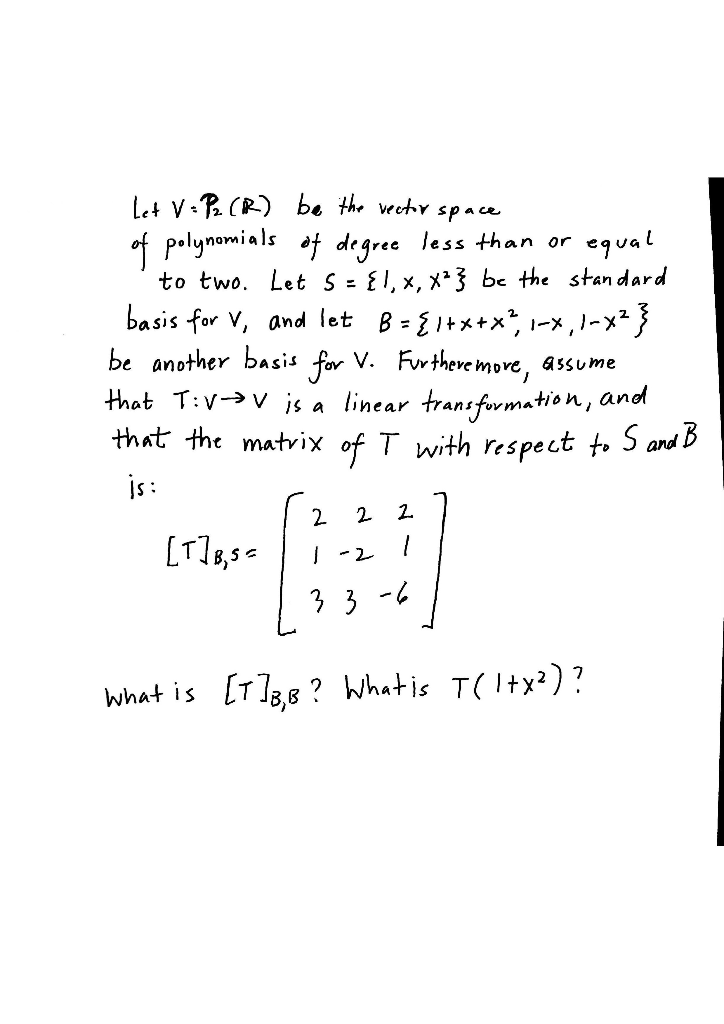 Let V = P₂(ℝ) be the vector space
of polynomials of degree less than or equal
to two. Let S = {1, x, x²} be the standard
basis for V, and let B = {1+x+x², 1-x, 1-x²}
be another basis for V. Furtheremore, assume
that T: V → V is a linear transformation, and
that the matrix of T with respect to S and B
is:
2 2 2
[T]B,S = 1 -2 1
3 3 -6
What is [T]B,B? What is T(1+x²)?